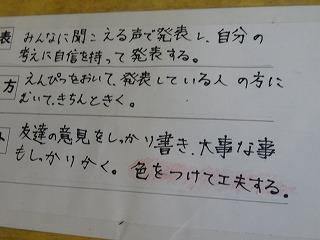 表 みんなに聞こえる声で発表し、自分の
考えに自信を持って発表する。
方 えんぴつをおいて、発表している人の方に
むいて、きちんときく。
友達の意見をしっかり書き、大事な事
もしっかりかく。色をつけて工夫する。